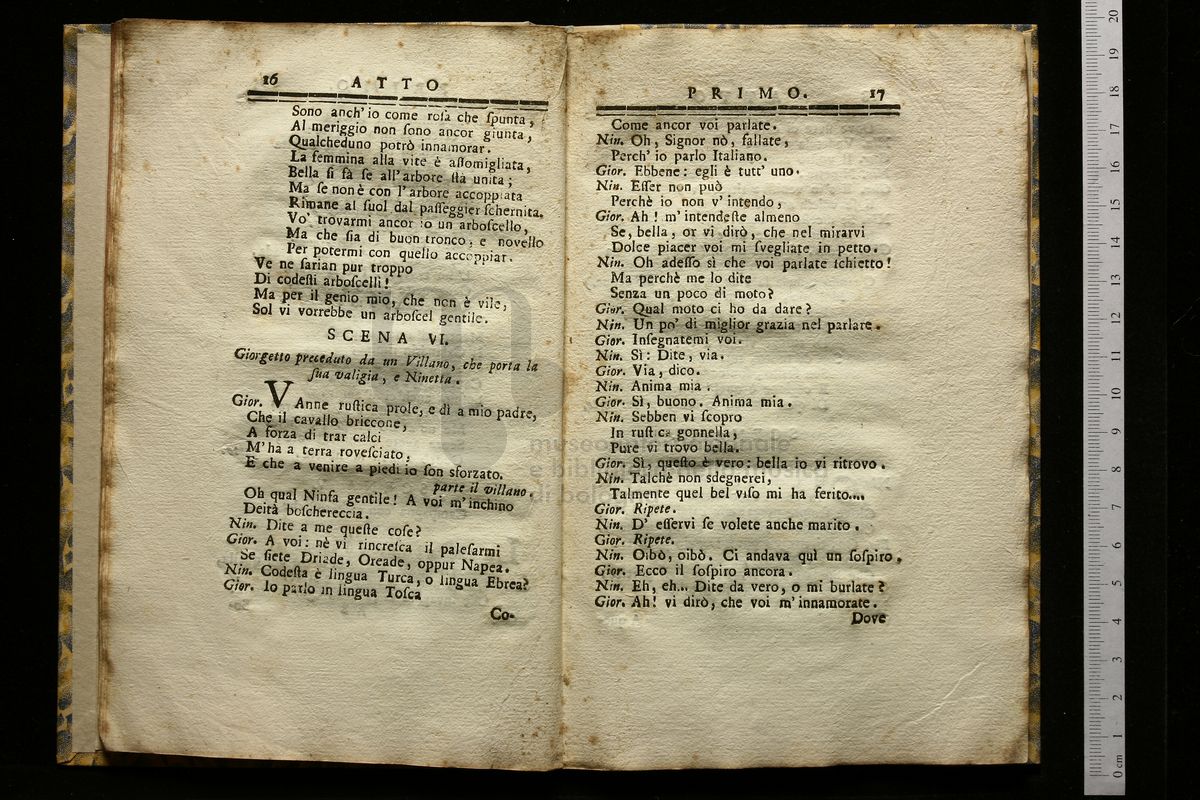 16 ATTO
Sono anch' io come rosa che ſpunta,
Al meriggio non ſono ancor giunta,
Qualcheduno potrò innamorar.
La femmina alla vite è aſſomigliata,
Bella ſi fà ſe all' arbore ſtà unita;
Ma ſe non è con l' arbore accoppiata
Rimane al ſuol dal paſſeggier ſchernita.
Vo' trovarmi ancor io un arboſcello,
Ma che ſia di buon tronco, e novello
Per potermi con quello accoppiar.
Ve ne ſarian pur troppo
Di codeſti arboſcelli!
Ma per il genio mio, che non è vile,
Sol vi vorrebbe un arboſcel gentile.
SCENA VI.
Giorgetto preceduto da un Villano, che porta la
ſua valigia, e Ninetta.
Gior. VAnne ruſtica prole, e dì a mio padre,
Che il cavallo briccone,
A forza di trar calci
M' ha a terra roveſciato,
E che a venire a piedi io ſon sforzato.
parte il villano.
Oh qual Ninfa gentile! A voi m' inchino
Deità boſchereccia.
Nin. Dite a me queſte coſe?
Gior. A voi: nè vi rincreſca il paleſarmi
Se ſiete Driade, Oreade, oppur Napea.
Nin. Codeſta è lingua Turca, o lingua Ebrea?
Gior. Io parlo in lingua Toſca
Co-
PRIMO. 17
Come ancor voi parlate.
Nin. Oh, Signor nò, fallate,
Perch' io parlo Italiano.
Gior. Ebbene: egli è tutt' uno.
Nin. Eſſer non può
Perchè io non v' intendo,
Gior. Ah! m' intendeſte almeno
Se, bella, or vi dirò, che nel mirarvi
Dolce piacer voi mi ſvegliate in petto.
Nin. Oh adeſſo sì che voi parlate ſchietto!
Ma perchè me lo dite
Senza un poco di moto?
Gior. Qual moto ci ho da dare?
Nin. Un po' di miglior grazia nel parlare.
Gior. Inſegnatemi voi.
Nin. Sì: Dite, via.
Gior. Via, dico.
Nin. Anima mia.
Gior. Sì, buono. Anima mia.
Nin. Sebben vi ſcopro
In ruſtica gonnella,
Pure vi trovo bella.
Gior. Sì, queſto è vero: bella io vi ritrovo.
Nin. Talchè non sdegnerei,
Talmente quel bel viſo mi ha ferito....
Gior. Ripete.
Nin. D' eſſervi ſe volete anche marito.
Gior. Ripete.
Nin. Oibò, oibò. Ci andava quì un ſoſpiro.
Gior. Ecco il ſoſpiro ancora.
Nin. Eh, eh... Dite da vero, o mi burlate?
Gior. Ah! vi dirò, che voi m' innamorate.
Dove